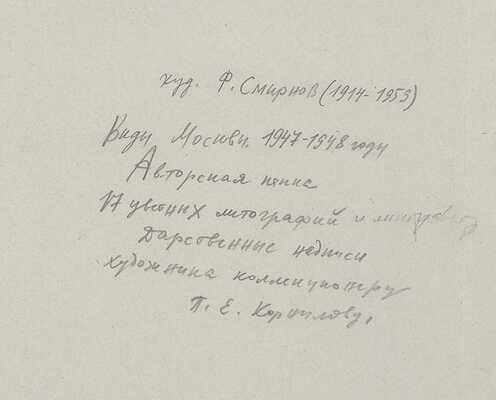 худ. Ф. Смирнов (1914-1953)
Виды Москвы. 1947-1948 годы
Авторская папка
17 цветных литографий и
Дарственные надписи
художника коллекционеру
П. Е. Корнилову.